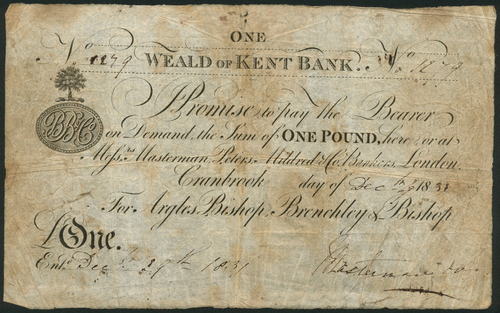 ONE
No 1279 WEALD OF KENT BANK. No 1279
BB&Co
I Promise to pay the Bearer
on Demand, the Sum of ONE POUND, here, or at
Messrs Masterman, Peters, Mildred & Co. Bankers, London.
Cranbrook day of Dec 1831
For Argles, Bishop, Brenchley & Bishop
£One.
Entd Dec 1831